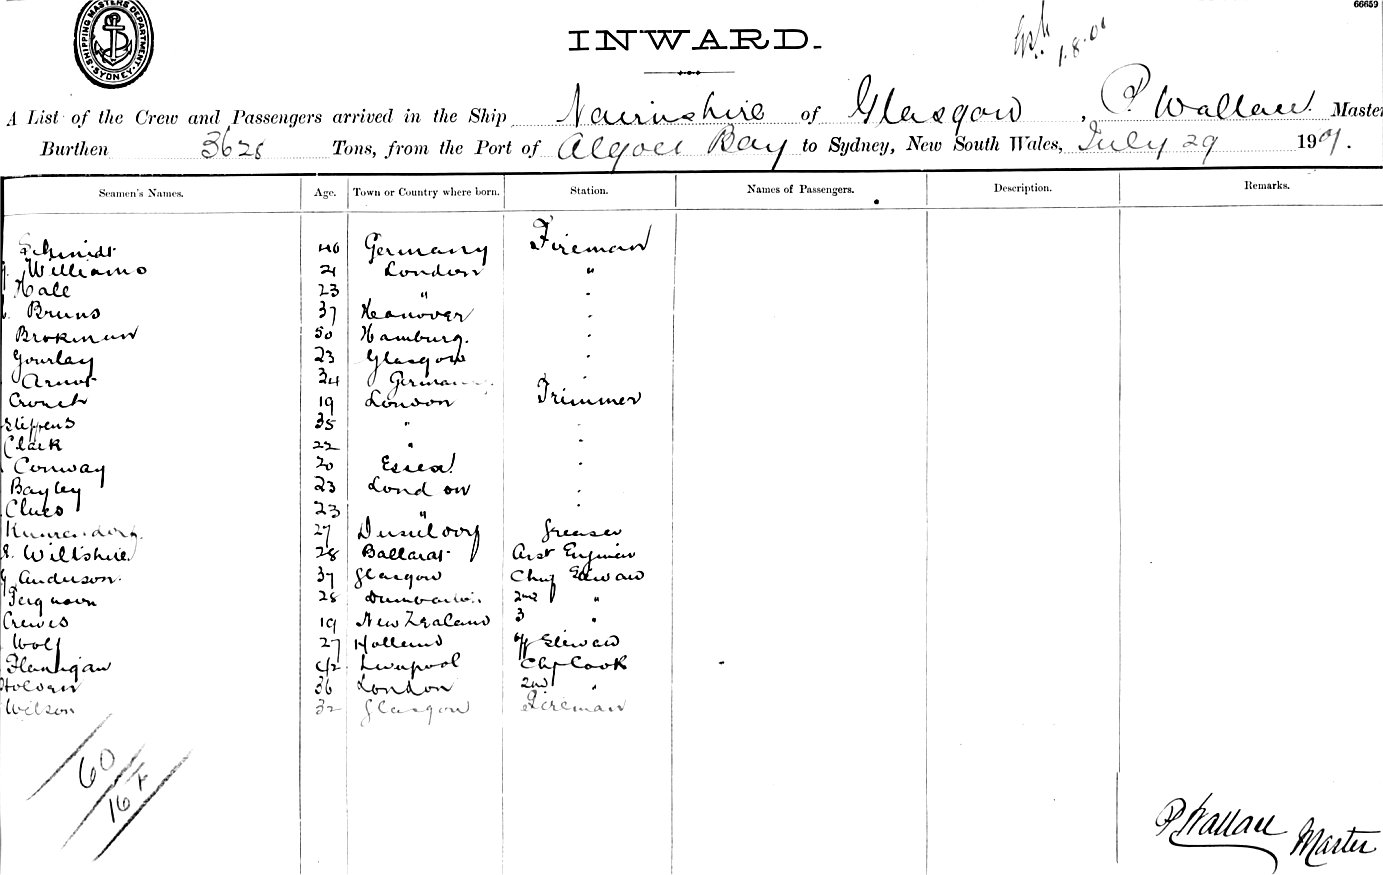 66659
SHIPPING MASTERS DEPARTMENT SYDNEY
INWARD.
1.8.01
A List of the Crew and Passengers arrived in the Ship Nairnshire of Glasgow, P. Wallace. Master
Burthen 3628 Tons, from the Port of Algoa Bay to Sydney, New South Wales, July 29 1901.
Seamen's Names. Age. Town or Country where born. Station. Names of Passengers. Description. Remarks.
Schmidt 40 Germany Fireman
Williams 21 London "
Hall 23 " "
Bruns 37 Hanover "
Brokman 50 Hamburg. "
Gourlay 23 Glasgow "
Arnot 34 Germany "
Crouch 19 London Trimmer
Steffens 35 " "
Clark 22 " "
Conway 20 Essex "
Bayley 23 London "
Clues 23 " "
27 Greaser
E. Wiltshire 28 Ballarat Asst Engineer
G Anderson. 37 Glasgow Chief Steward
Ferguson 28 Dumbarton 2nd "
Crewes 19 New Zealand 3 "
Wolf 27 Holland Steward
Flannigan 42 Liverpool Chf Cook
36 London 2nd "
Wilson 32 Glasgow Fireman
60
16
P Wallace Master